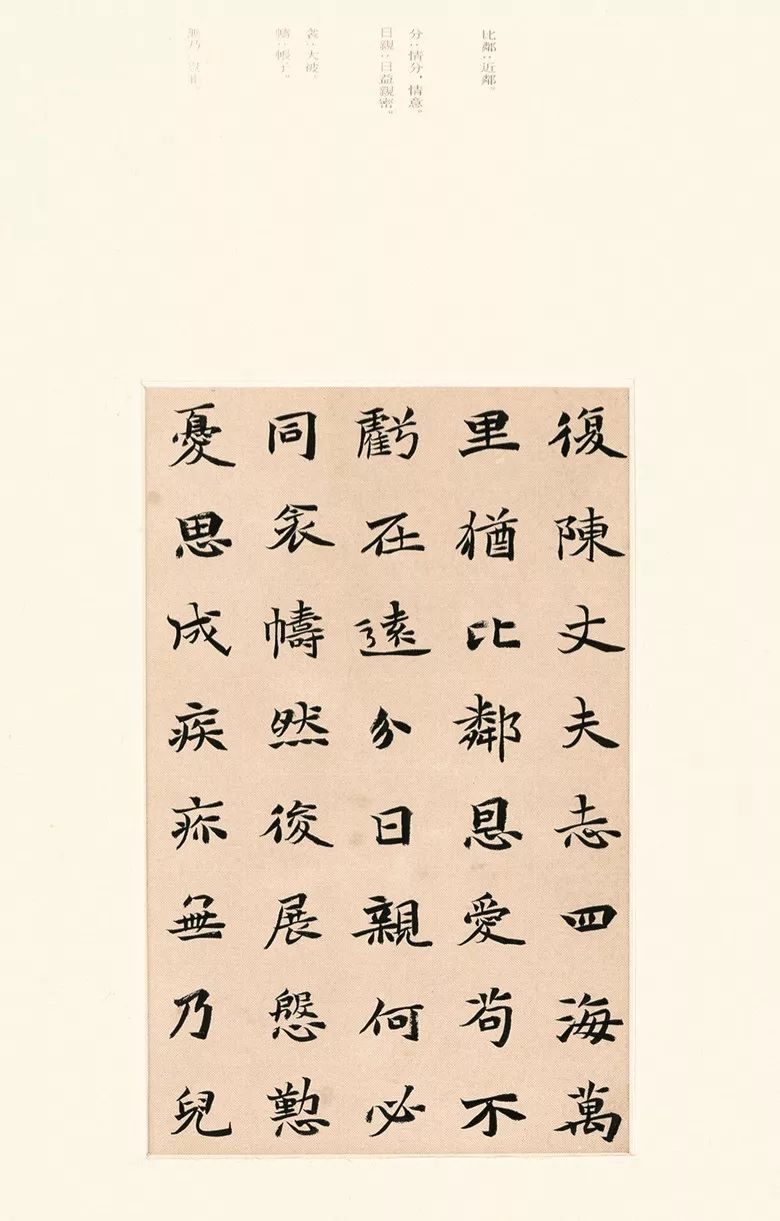 比鄰：近鄰。
分：情分，情意。
日親：日益親密。
衾：大被。
幬：帳子。
復陳丈夫志四海萬
里猶比鄰恩愛苟不
虧在遠分日親何必
同衾幬然後展慇懃
憂思成疾疢無乃兒